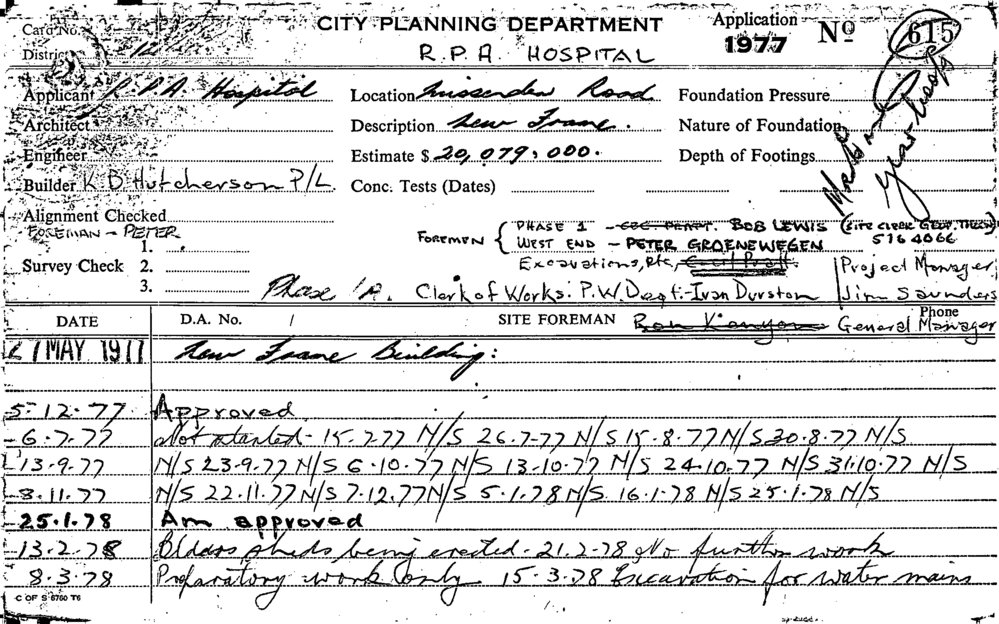 Card No.
CITY PLANNING DEPARTMENT
Application 1977 Nº 615
District
R.P.A. HOSPITAL
Applicant R.P.A. Hospital Location Missenden Road Foundation Pressure
Architect Description New Frame. Nature of Foundation
Engineer Estimate $ 20,079,000. Depth of Footings
Builder K B Hutcherson P/L. Conc. Tests (Dates)
Alignment Checked
FOREMAN - PETER
FOREMEN { PHASE 1 - BOB LEWIS (SITE CLERK
WEST END - PETER GROENEWEGEN 516 4066
1.
Survey Check 2.
Excavations, etc, Project Manager
3.
Phase 1A. Clerk of Works: P.W. Dept.- Ivan Durston Jim Saunders
DATE D.A. No. / SITE FOREMAN Ron Kenyon General Manager Phone
27 MAY 1977 New Frame Building:
5-12-77 Approved
6-7-77 Not started - 15-7-77 N/S 26-7-77 N/S 15-8-77 N/S 30-8-77 N/S
13-9-77 N/S 23-9-77 N/S 6-10-77 N/S 13-10-77 N/S 24-10-77 N/S 31-10-77 N/S
8-11-77 N/S 22-11-77 N/S 7-12-77 N/S 5-1-78 N/S 16-1-78 N/S 25-1-78 N/S
25.1.78 Am approved
13-2-78 Bldrs sheds being erected - 21-2-78 No further work
8-3-78 Preparatory work only 15-3-78 Excavation for water mains
C OF S 6760 T6